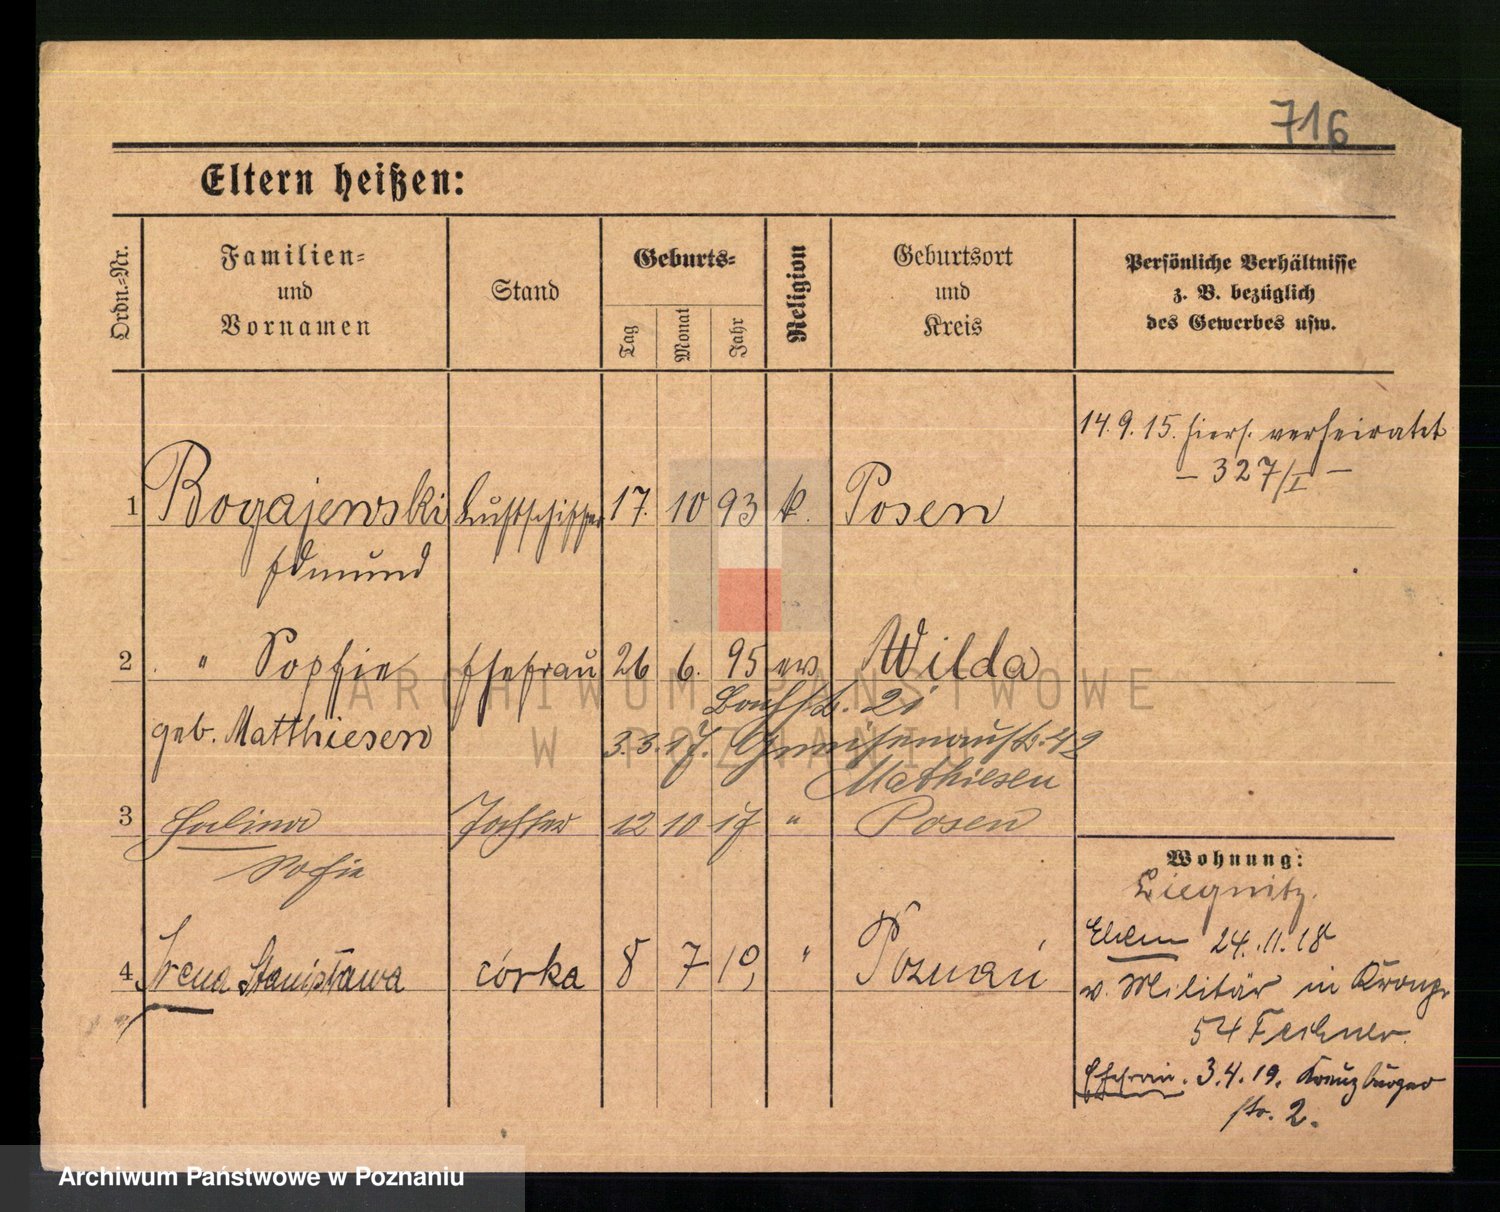 716
Eltern heißen:
Ordn.-Nr.
Familien-
und
Vornamen
Stand
Geburts-
Tag
Monat
Jahr
Religion
Geburtsort
und
Kreis
Persönliche Verhältnisse
z. B. bezüglich
des Gewerbes usw.
14.9.15. hiers. verheiratet
- 327/I -
1 Bogajewski Luftschiffer 17. 10 93 k. Posen
Edmund
2 " Sophie Ehefrau 26 6. 95 ev. Wilda
21
geb. Matthiesen 3.3.17. Gneisenaustr. 42
Mathiesen
3 Halina Tochter 12 10 17 " Posen
Sofie
Wohnung:
Liegnitz.
Ehem 24.11.18
v. Militär in Kronpr
54
4 Irena Stanisława córka 8 7 19, " Poznań
Ehefrau. 3.4.19. Kreuzburger
str. 2.
ARCHIWUM PAŃSTWOWE
W POZNANIU
Archiwum Państwowe w Poznaniu